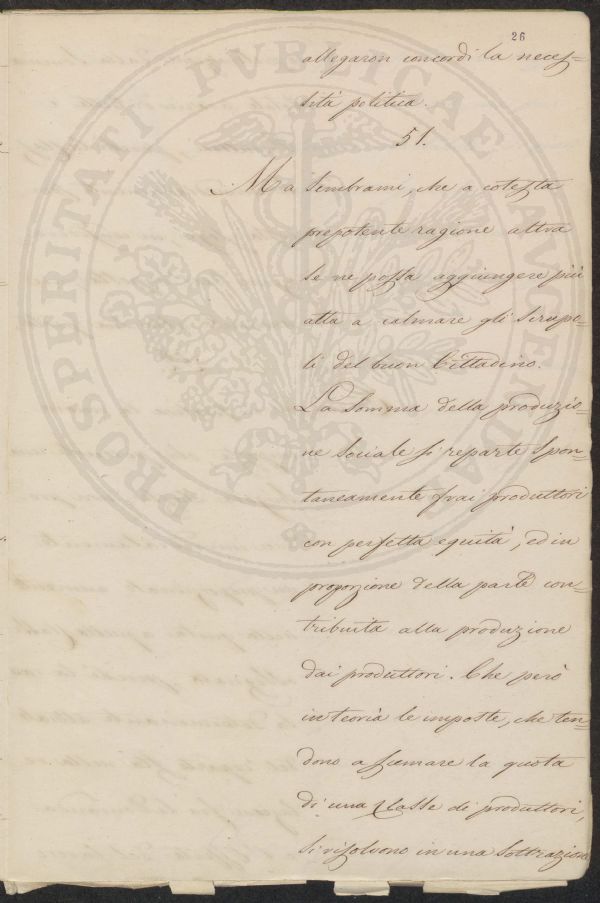 26
allegaron concordi la neces=
sità politica.
51.
Ma sembrami, che a cotesta
prepotente ragione altra
se ne possa aggiungere più
atta a calmare gli scrupo=
li del buon Cittadino.
La somma della produzio=
ne sociale si reparte spon=
taneamente frai produttori
con perfetta equità, ed in
proporzione della parte con=
tribuita alla produzione
dai produttori. Che però
in teoria le imposte, che ten=
dono a scemare la quota
di una classe di produttori,
si risolvono in una sottrazione
PROSPERITATI PVBLICAE AVGENDAE